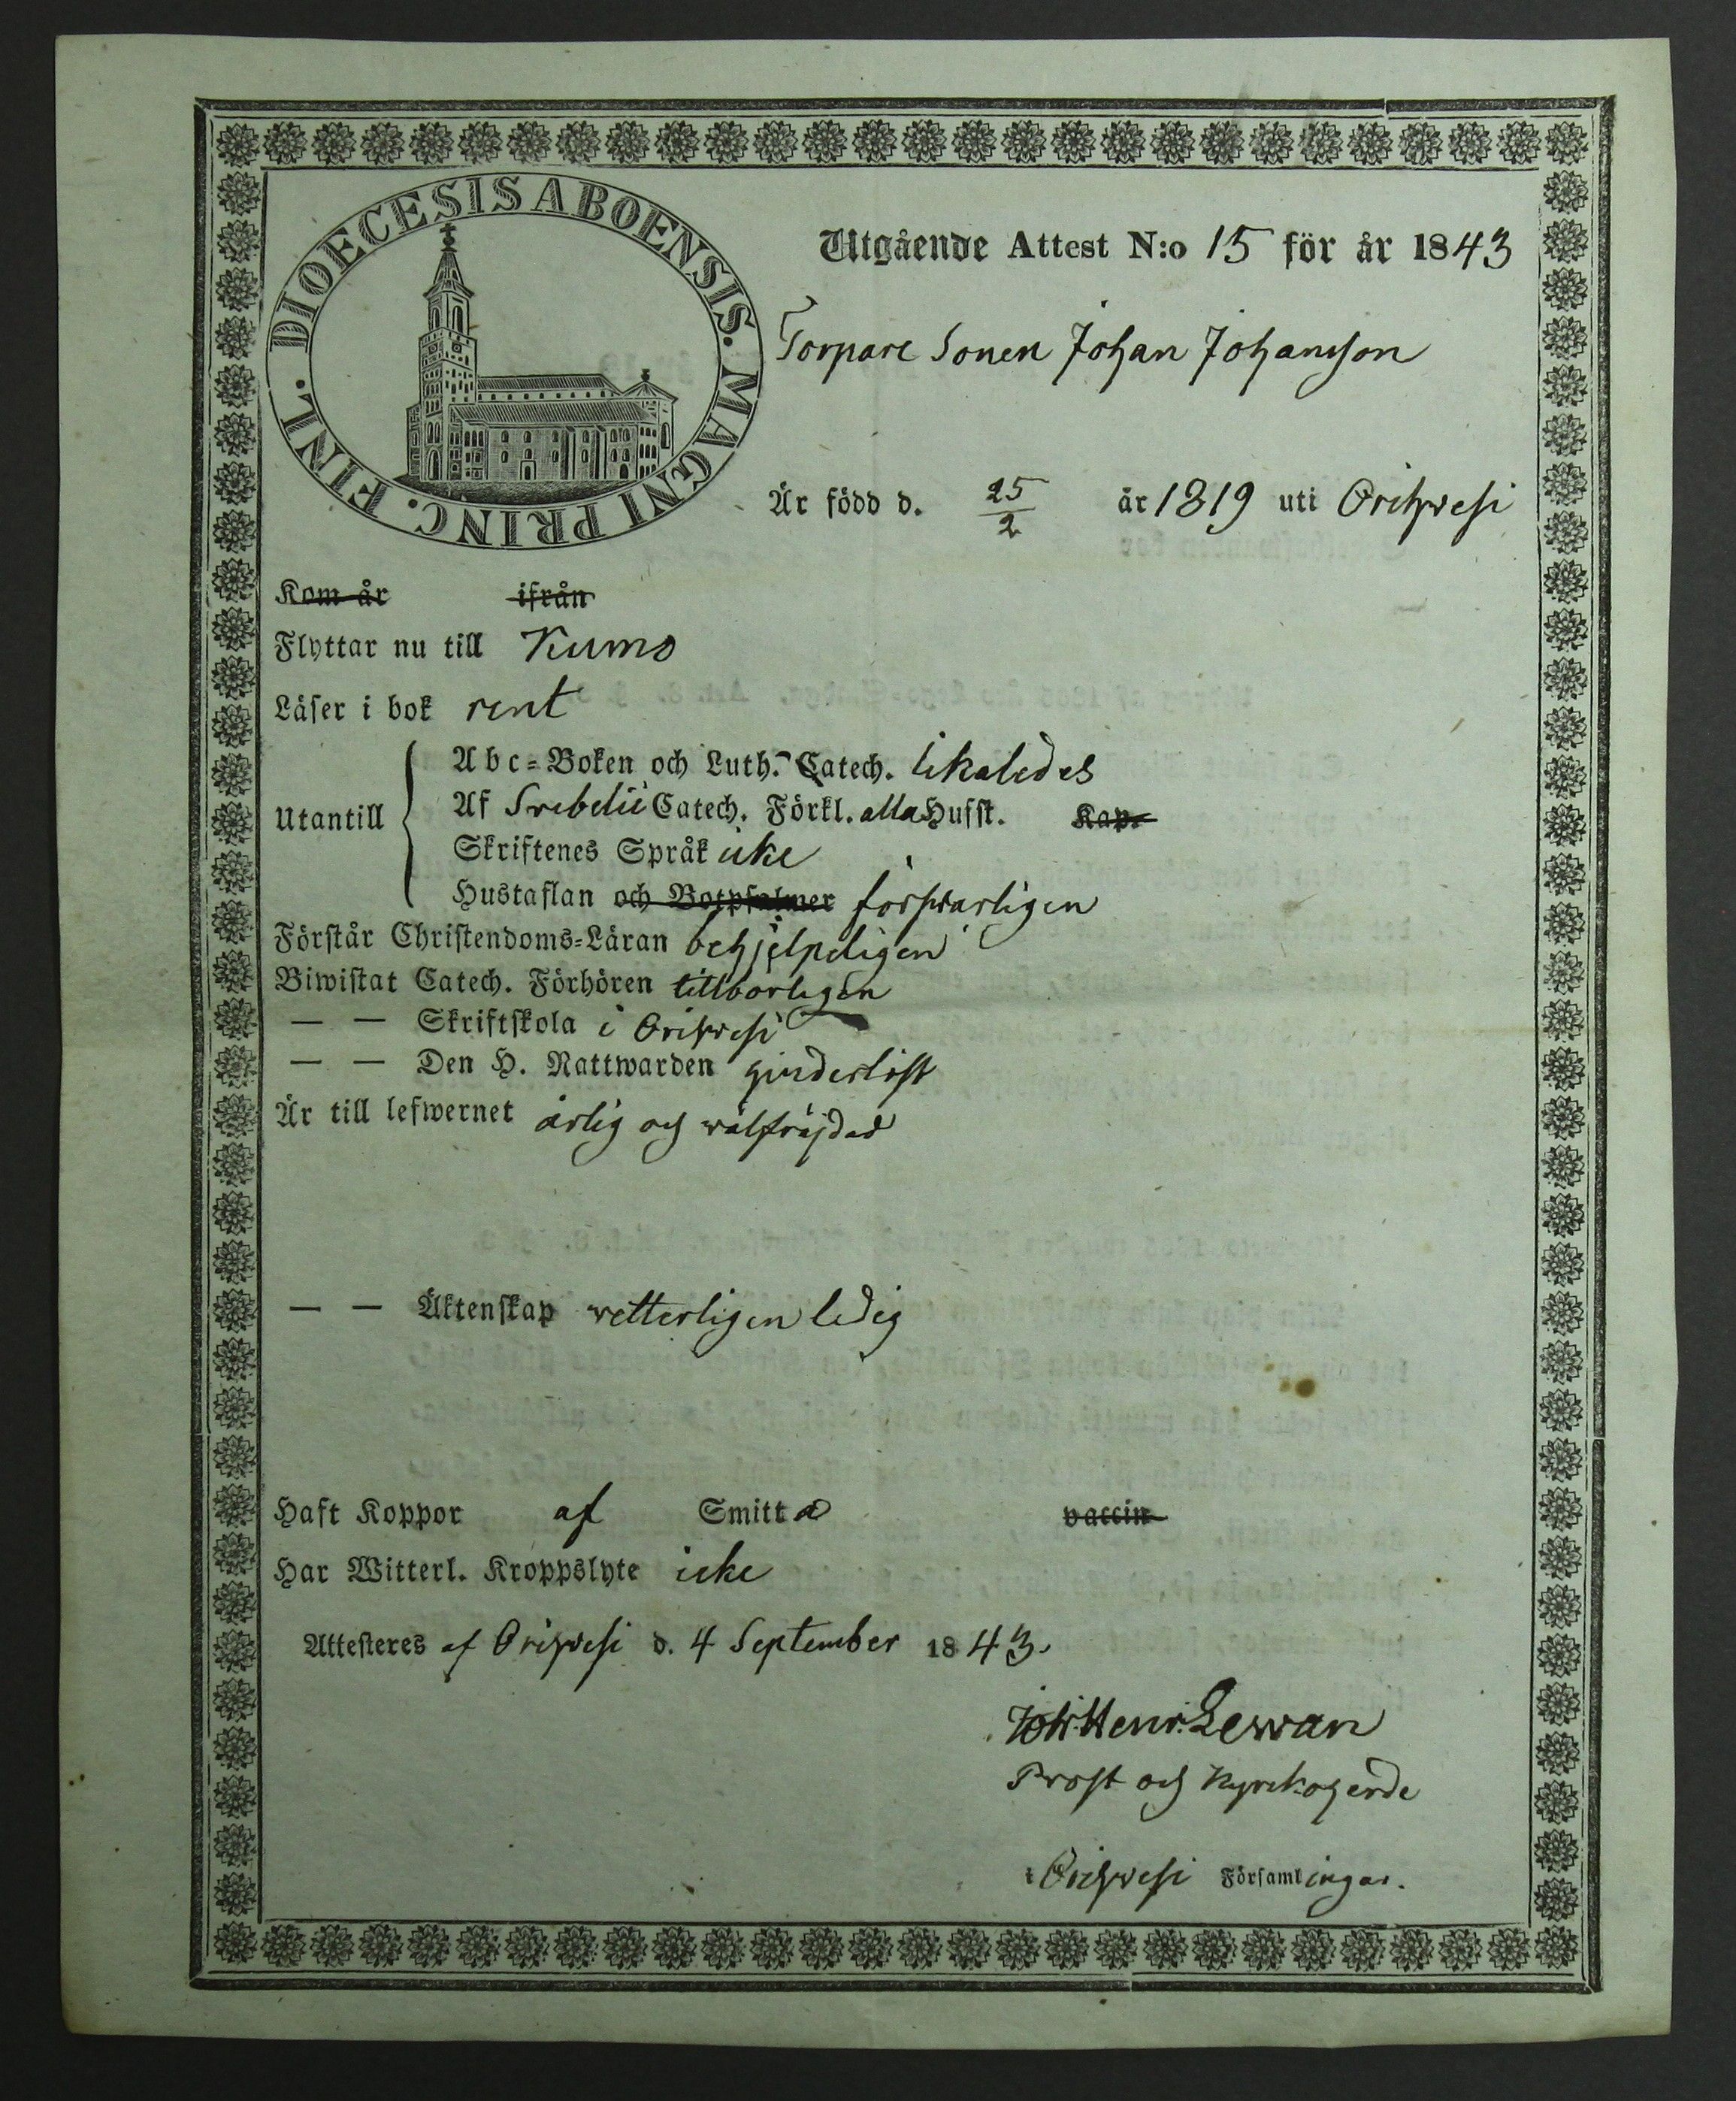 DIOECESIS ABOENSIS. MAGNI PRINC. FINL.
Utgående Attest N:o 15 för år 1843
Torpare Sonen Johan Johansson
Är född d. 25/2 år 1819 uti Orihvesi
Kom år ifrån
Flyttar nu till Kumo
Läser i bok rent
Utantill
Abc-Boken och Luth. Catech. likaledes
Af Svebelii Catech. Förkl. alla Husst. Kap.
Skriftenes Språk icke
Hustaflan och Botpsalmer försvarligen
Förstår Christendoms-Läran behjelpeligen
Biwistat Catech. Förhören tillbörligen
— — Skriftskola i Orihvesi
— — Den H. Nattwarden hinderlöst
Är till lefwernet ärlig och välfräjdad
— — Äktenskap vetterligen ledig
Haft Koppor af Smitta vaccin
Har Witterl. Kroppslyte icke
Attesteres af Orihvesi d. 4 September 1843.
Joh. Henr. Levvan
Prost och Kyrckoherde
i Orihvesi Församlingar.